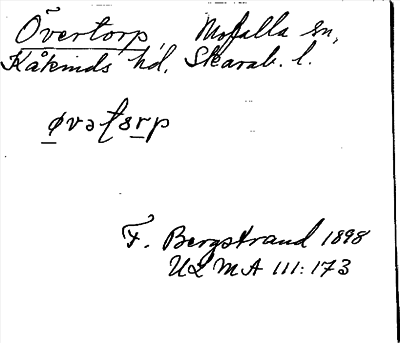 Övertorp, Mofalla sn,
Kåkinds hd. Skarab. l.
øvəʈsrp
F. Bergstrand 1898
ULMA 111:173